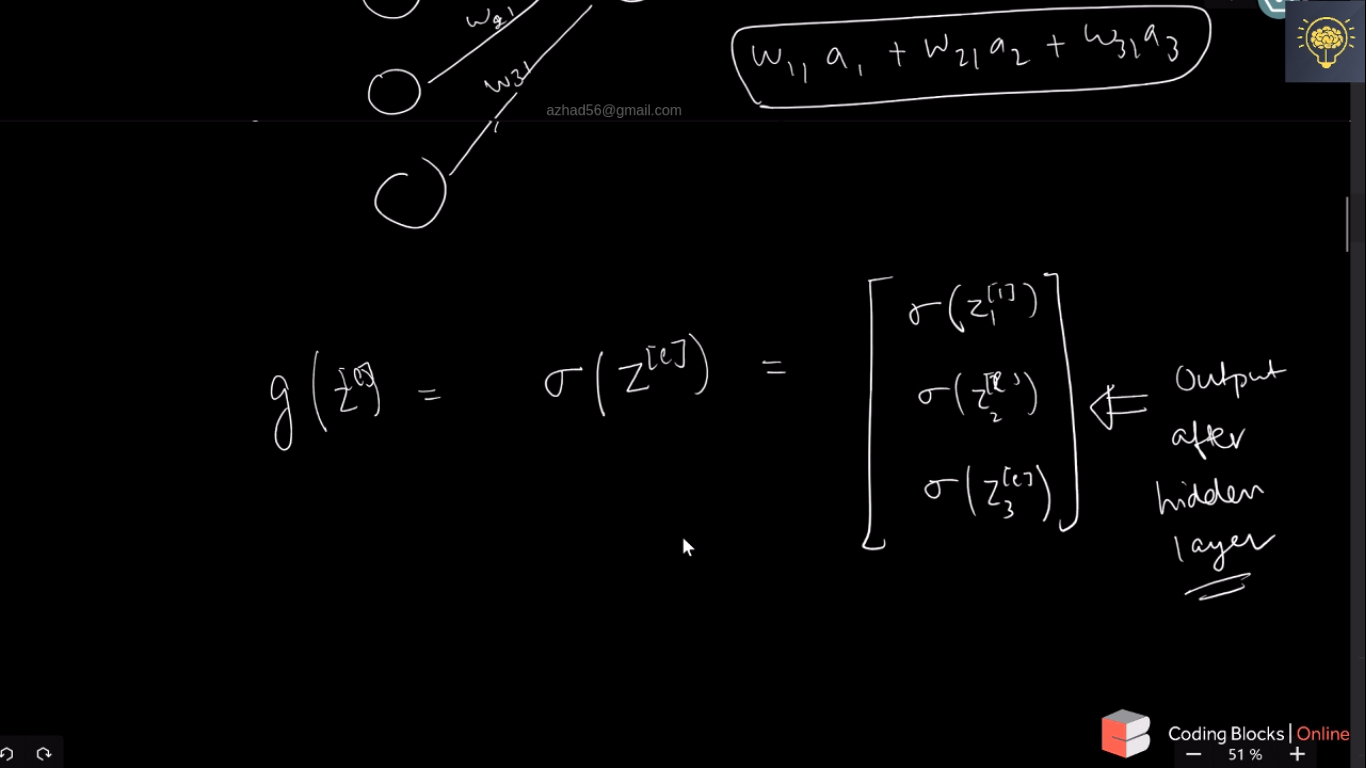 w21
w31
w₁₁ a₁ + w₂₁ a₂ + w₃₁ a₃
azhad56@gmail.com
g(z^[l]) = σ(z^[l]) =
σ(z₁^[1])
σ(z₂^[l])
σ(z₃^[l])
Output
after
hidden
layer
Coding Blocks | Online
51 %